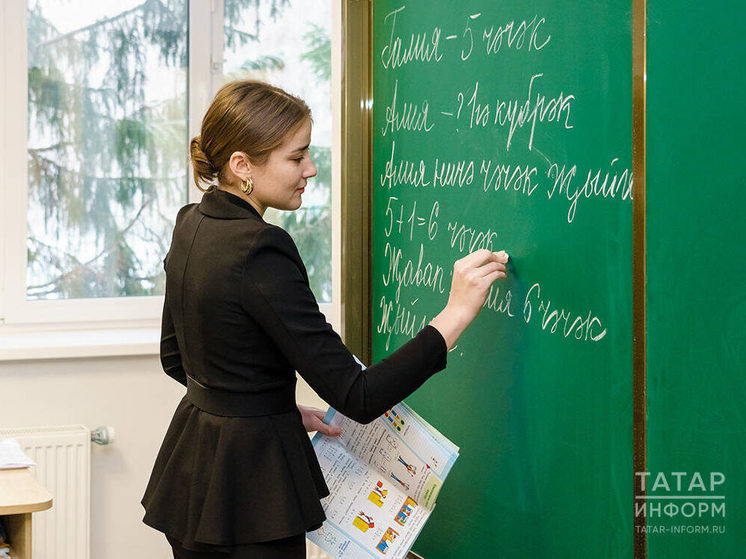 Галия – 5 чәчәк
Алия – ? 1гә күбрәк
Алия ничә чәчәк җыйган
5+1=6 чәчәк
Җавап 6 чәчәк
ТАТАР
ИНФОРМ
TATAR-INFORM.RU